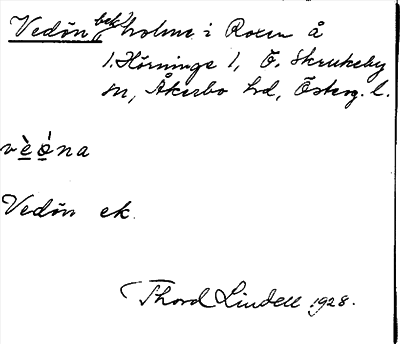 Vedön bek. holme i Roxen å
1. Hörninge 1, Ö. Skrukeby
sn, Åkerbo hd, Österg. l.
vèǿna
Vedön ek.
Thord Lindell 1928.